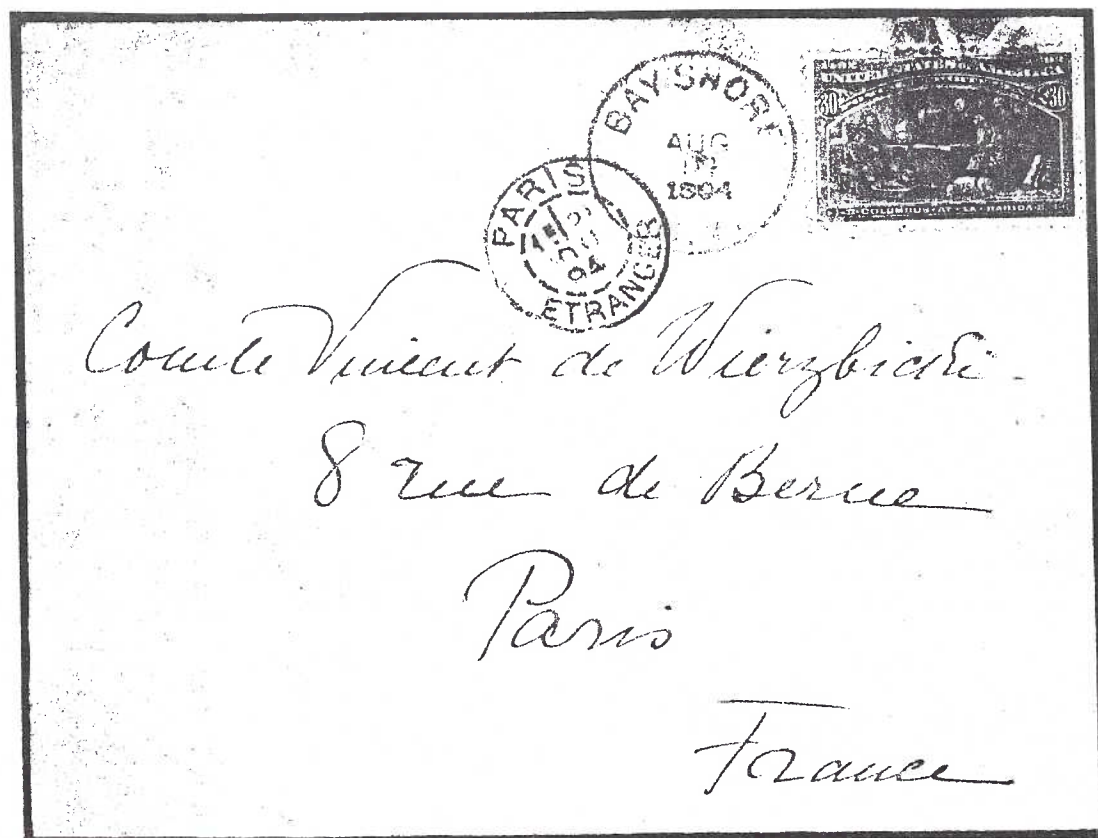 UNITED STATES OF AMERICA
30 30
COLUMBUS AT LA RABIDA
BAY SHORE
AUG
1894
PARIS
94
ETRANGER
Comte Vincent de Wierzbicki
8 rue de Berne
Paris
France